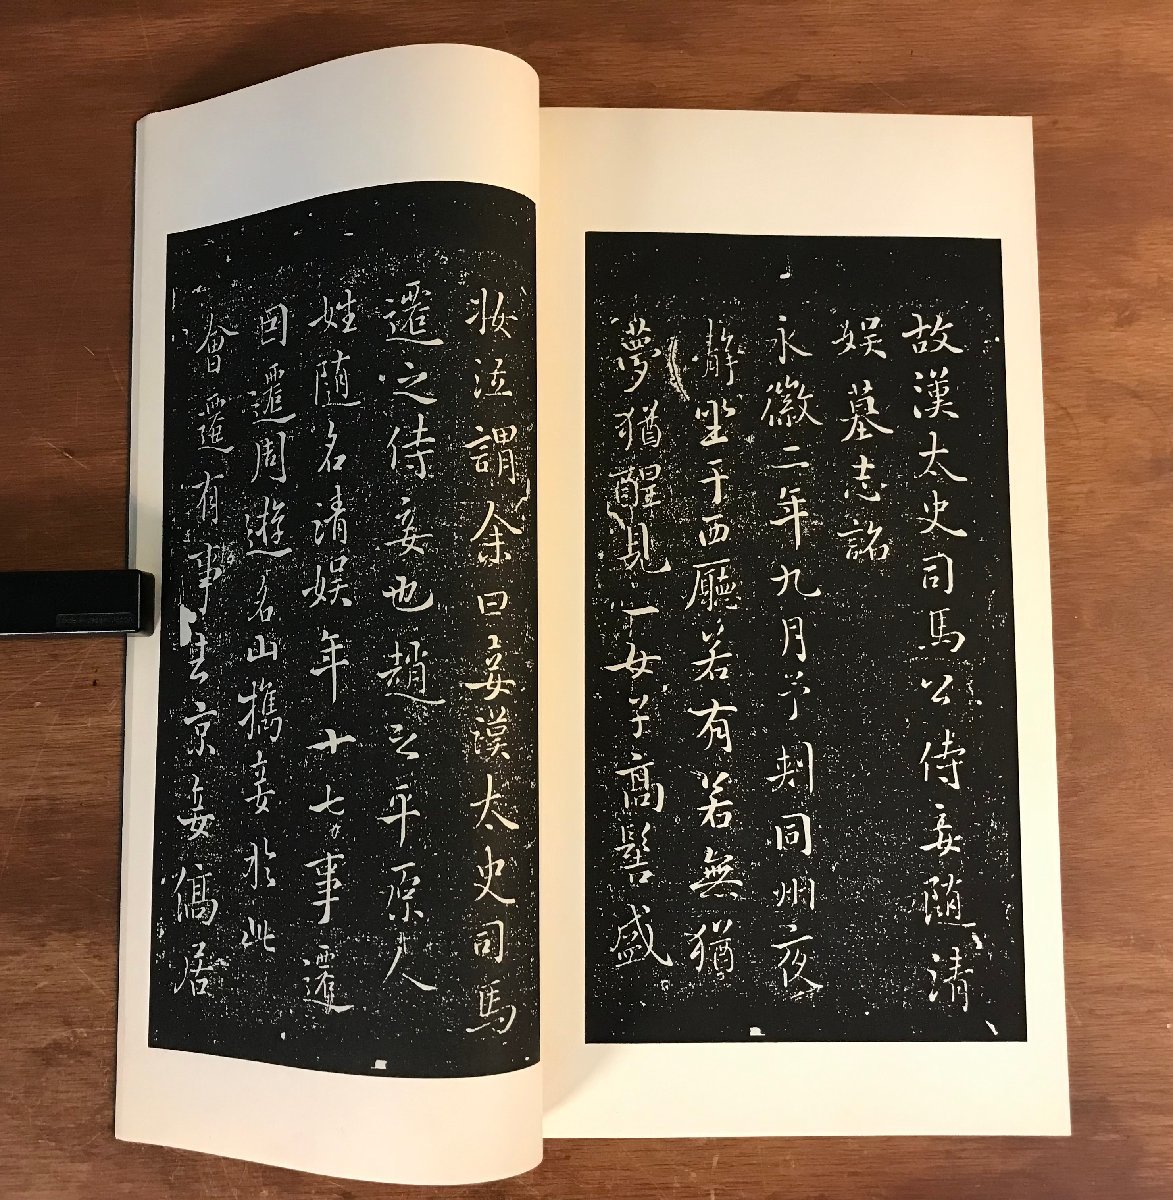 故漢太史司馬公侍妾随清
娱墓志銘
永徽二年九月予刺同州夜
静坐于西廳若有若無猶
夢猶醒見一女子高髻盛
妝泣謂余曰妾漢太史司馬
遷之侍妾也趙之平原人
姓随名清娱年十七事遷
因遷周遊名山携妾於此
會遷有事去京妾僑居